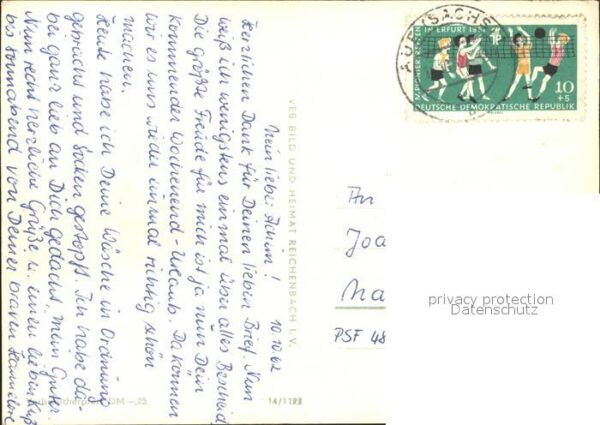 10.10.62
Mein lieber Achim!
Herzlichen Dank für Deinen lieben Brief. Nun
weiß ich wenigstens einmal über alles Bescheid
Die größte Freude für mich ist ja nun Dein
kommender Wochenend-Urlaub. Da können
wir es uns wieder einmal richtig schön
machen.
Heute habe ich Deine Wäsche in Ordnung
gebracht und Socken gestopft. Ich habe da-
bei ganz lieb an Dich gedacht, mein Guter.
Nun recht herzliche Grüße u. einen lieben Kuß
bis Sonnabend von Deiner braven Hannelore
VEB BILD UND HEIMAT REICHENBACH I. V.
14/1122
DM -,25
AUE (SACHS
PIONIERTREFFEN IN ERFURT 1961
10
+5
DEUTSCHE DEMOKRATISCHE REPUBLIK
An
Joa
Na
PSF 48
privacy protection
Datenschutz